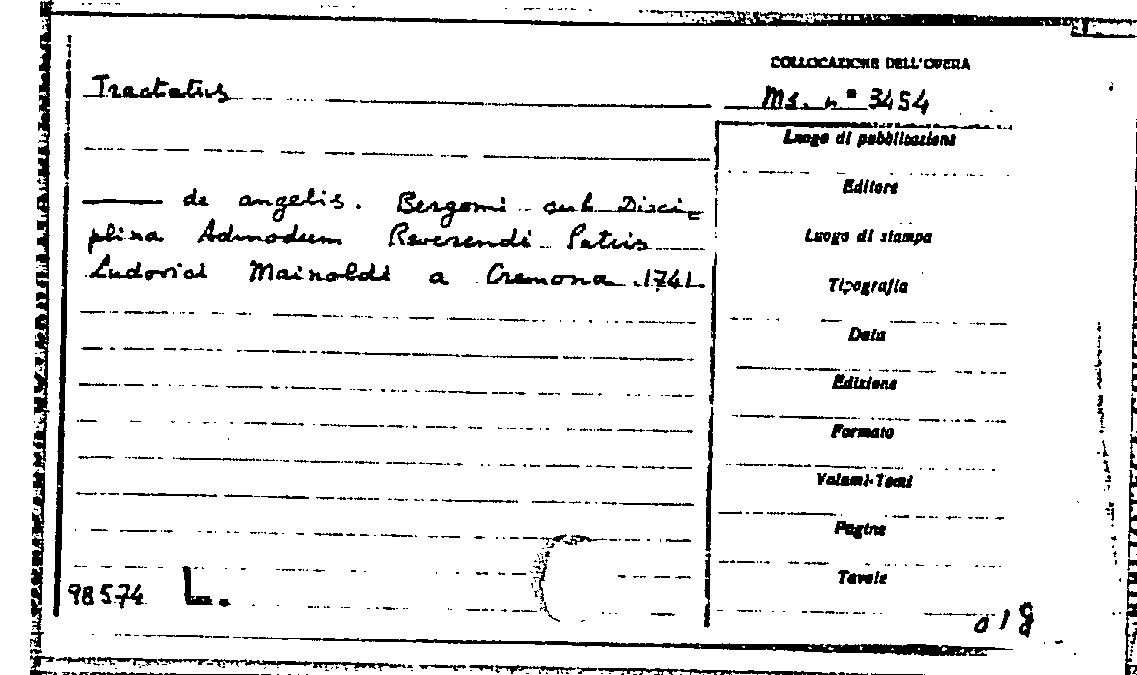 COLLOCAZIONE DELL'OPERA
Tractatus
Ms. n° 3454
Luogo di pubblicazione
Editore
de angelis. Bergomi sub Disci=
plina Admodum Reverendi Patris
Ludovici Mainoldi a Cremona. 1741.
Luogo di stampa
Tipografia
Data
Edizione
Formato
Volumi-Tomi
Pagine
Tavole
98574 L.